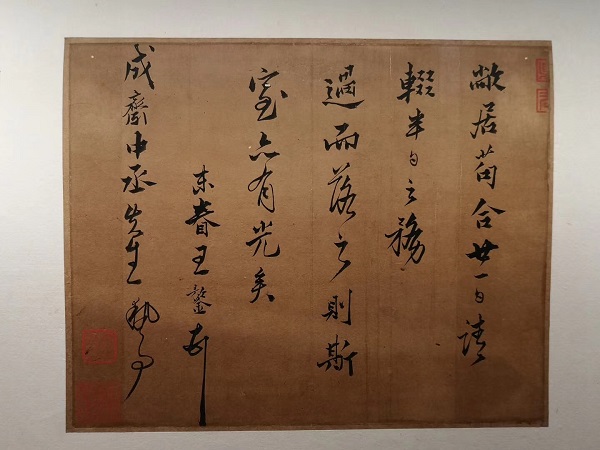 敝居苟合廿一日請
輟半日之務
過而落之則斯
室亦有光矣
末眷王鏊頓
成齋中丞先生執事